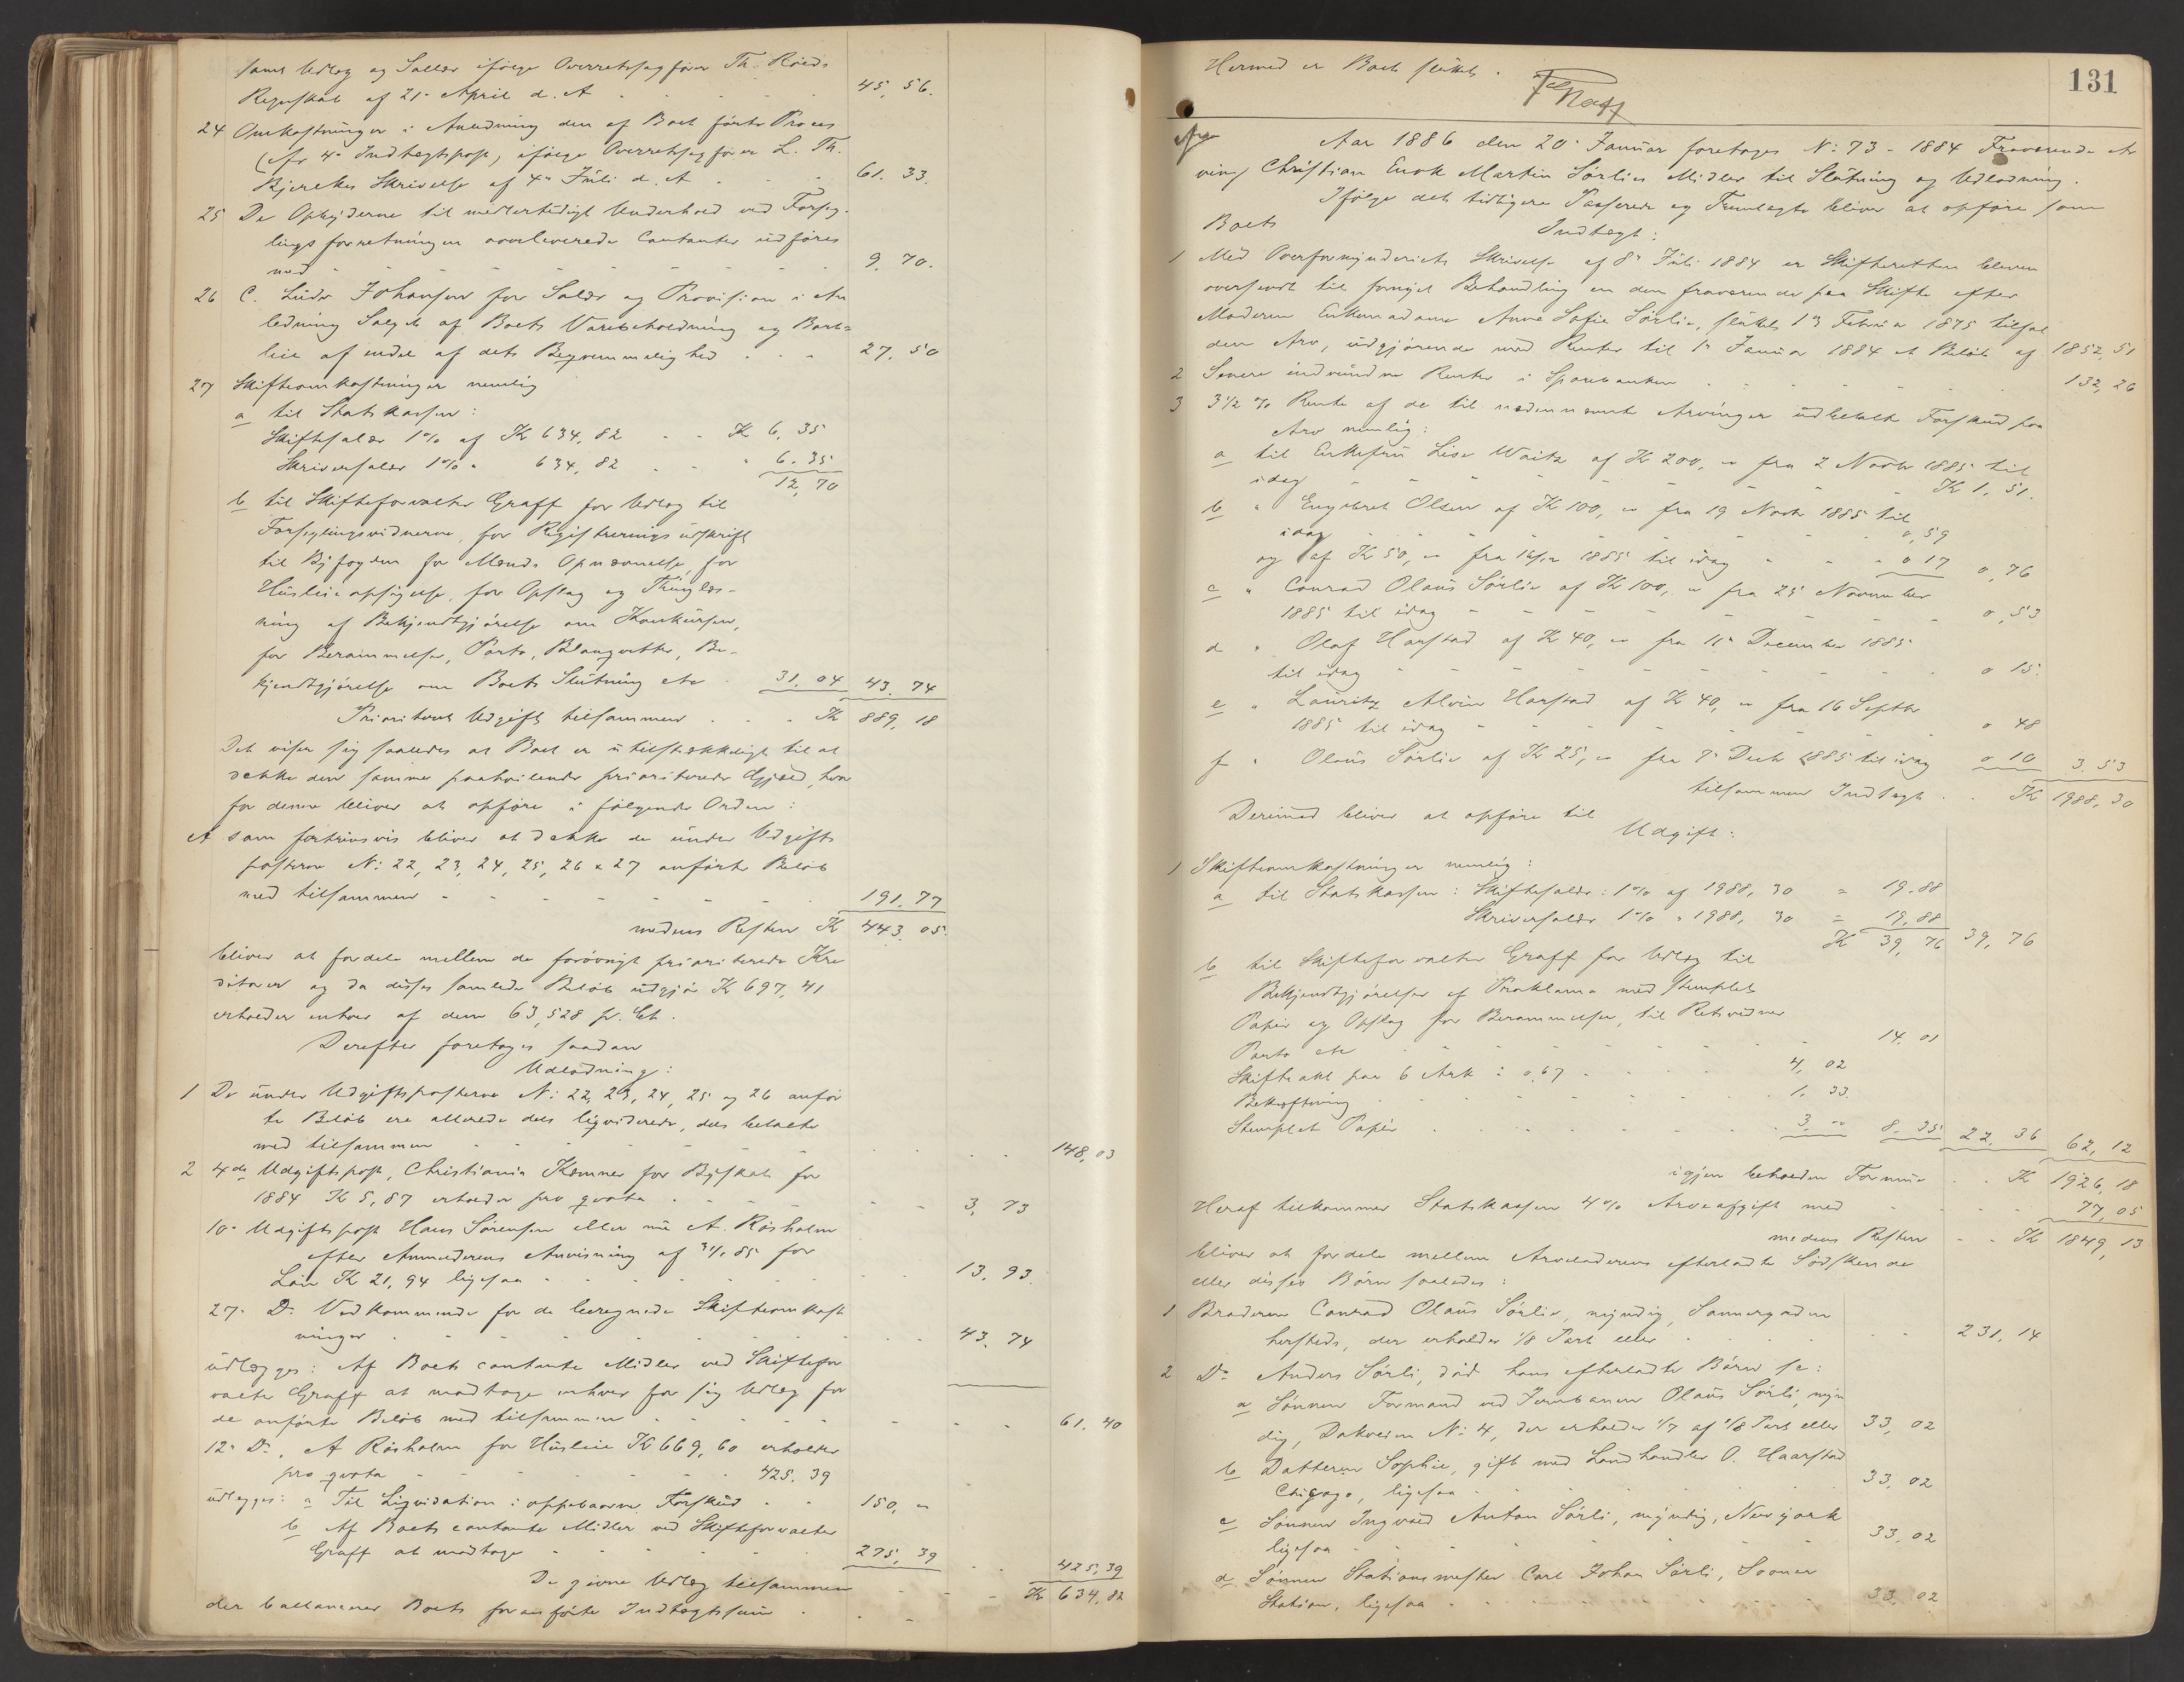 samt Udlæg og Sallær ifølge Overretssagfører Th. Röeds
Regnskab af 21 April d. A 45, 56.
24 Omkostninger i Anledning den af Boet førte Proces
(cfr 4de Indtægtspost) ifølge Overretssagfører L. Th.
Bjerckes Skrivelse af 4de Juli d. A 61. 33.
25 De Opsiderne til midlertidigt Underhold ved Forseg-
lingsforretningen overleverede Contanter udføres
med 9. 70.
26 C. Luder Johansen for Salær og Provision i An
ledning Salget af Boets Varebeholdning og Bort-
leie af endel af dets Beqvemmelighed 27. 50
27 Skifteomkostninger nemlig
a til Statskassen:
Skiftesalær 1% af K 634, 82 K 6, 35
Skriversalær 1% " 634, 82 " 6. 35
12, 70
b til Skifteforvalter Graff for Udlæg til
Forseglingsvidnerne, for Registreringsudskrift
til Byfogden for Mænds Opnævnelse, for
Husleieopsigelse, for Opslag og Thinglæs-
ning af Bekjendtgjørelse om Konkursen,
for Berammelse, Porto, Blanqvetter, Be-
kjendtgjørelse om Boets Slutning etc 31. 04 43. 74
Prioriteret Udgift tilsammen K 889, 18
Det viser sig saaledes at Boet er utilstrækkeligt til at
dække den samme paahvilende prioriterede Gjæld, hvor
for denne bliver at opføre i følgende Orden:
A som fortrinsvis bliver at dække de under Udgifts
posterne N: 22, 23, 24, 25, 26 & 27 anførte Beløb
med tilsammen 191. 77
medens Resten K 443. 05.
bliver at fordele mellem de forøvrigt prioriterede Kre
ditorer og da disses samlede Beløb udgjør K 697, 41
erholder enhver af dem 63,528 pr. Ct.
Derefter foretages saadan
Udlodning:
1 De under Udgiftsposterne N: 22, 23, 24, 25 og 26 anfør
te Beløb ere allerede dels ligviderede, dels betalte
med tilsammen 148, 03
2 4de Udgiftspost, Christiania Kemner for Byskat for
1884 K 5, 87 erholder pro qvota 3, 73
10de Udgiftspost Hans Sørensen eller nu A. Rosholm
efter Anmelderens Anvisning af 3/1 85 for
Løn K 21, 94 ligesaa 13, 93.
27. Do Vedkommende for de beregnede Skifteomkost
ninger 43. 74
udlægges: Af Boets contante Midler ved Skiftefor
valter Graff at modtage enhver for sig Udlæg for
de anførte Beløb med tilsammen 61. 40
12te Do, A Rosholm for Husleie K 669, 60 erholder
pro qvota 425. 39
udlægges: a Til Ligvidation i oppebaarne Forskud 150, "
b Af Boets contante Midler ved Skifteforvalter
Graff at modtage 275, 39 425, 39
De givne Udlæg tilsammen K 634, 82
der ballancerer Boets foranførte Indtægtssum
Hermed er Boet sluttet.
Graff
131
Aar 1886 den 20de Januar foretages N: 73 - 1884 Fraværende Ar
ving Christian Enok Martin Sørlies Midler til Slutning og Udlodning.
Ifølge det tidligere Passerede og Fremlagte bliver at opføre som
Boets
Indtægt:
1 Med Overformynderiets Skrivelse af 8de Juli 1884 er Skifteretten bleven
oversendt til fornyet Behandling en den fraværende paa Skifte efter
Moderen Enkemadame Anne Sofie Sörlie, sluttet 13 Februar 1875 tilfal
den Arv, udgjørende med Renter til 1de Januar 1884 et Beløb af 1852, 51
2 Senere indvundne Renter i Sparebanken 132, 26
3 3 1/2 % Rente af de til nedennævnte Arvinger udbetalte Forskud paa
Arv nemlig:
a til Enkefru Lise Waitz af K 200, " fra 2 Novbr 1885 til
idag K 1. 51.
b " Engebret Olsen af K 100, " fra 19 Novbr 1885 til
idag 0, 59
og af K 50, " fra 16/12 1885 til idag " 0 17 0, 76
c " Conrad Olaus Sörlie af K 100, " fra 25 November
1885 til idag 0, 53
d " Olaf Harstad af K 40, " fra 11te December 1885
til idag 0 15.
e " Lauritz Alvin Harstad af K 40, " fra 16 Septbr
1885 til idag 0 48
f " Olaus Sørlie af K 25, " fra 7de Decbr 1885 til idag 0 10 3. 53
tilsammen Indtægt K 1988, 30
Derimod bliver at opføre til
Udgift:
1 Skifteomkostninger nemlig:
a til Statskassen: Skiftesalær: 1% af 1988, 30 = 19. 88
Skriversalær 1% " 1988, 30 = 19, 88
K 39, 76 39, 76
b til Skifteforvalter Graff for Udlæg til
Bekjendtgjørelser af Proklama med stemplet
Papir og Opslag for Berammelse, til Retsvidner
Porto etc 14. 01
Skifteakt paa 6 Ark à 0,67 4, 02
Bekræftning 1. 33.
Stemplet Papir 3. " 8. 35 22, 36 62, 12
igjen beholden Formue K 1926, 18
Heraf tilkommer Statskassen 4% Arveafgift med 77, 05
medens Resten K 1849, 13
bliver at fordele mellem Arveladerens efterladte Sødskende
eller disses Børn saaledes:
1 Broderen Conrad Olaus Sörlie, myndig, Sannergaden
hersteds, der erholder 1/8 Part eller 231. 14
2 Do Anders Sörli, död hans efterladte Börn sc:
a Sønnen Formand ved Jernbanen Olaus Sörli, myn
dig, Dokveien N: 4, der erholder 1/7 af 1/8 Part eller 33, 02
b Datteren Sophie, gift med Landhandler O. Haarstad
Chigago, ligesaa 33, 02
c Sønnen Ingvald Anton Sörli, myndig, Newyork
ligesaa 33, 02
d Sønnen Stationsmester Carl Johan Sörli, Sooner
Station, ligesaa 33, 02